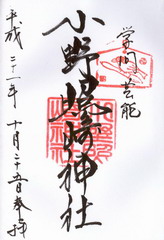 学問芸能
小野照崎神社
平成二十一年十月二十五日奉拝